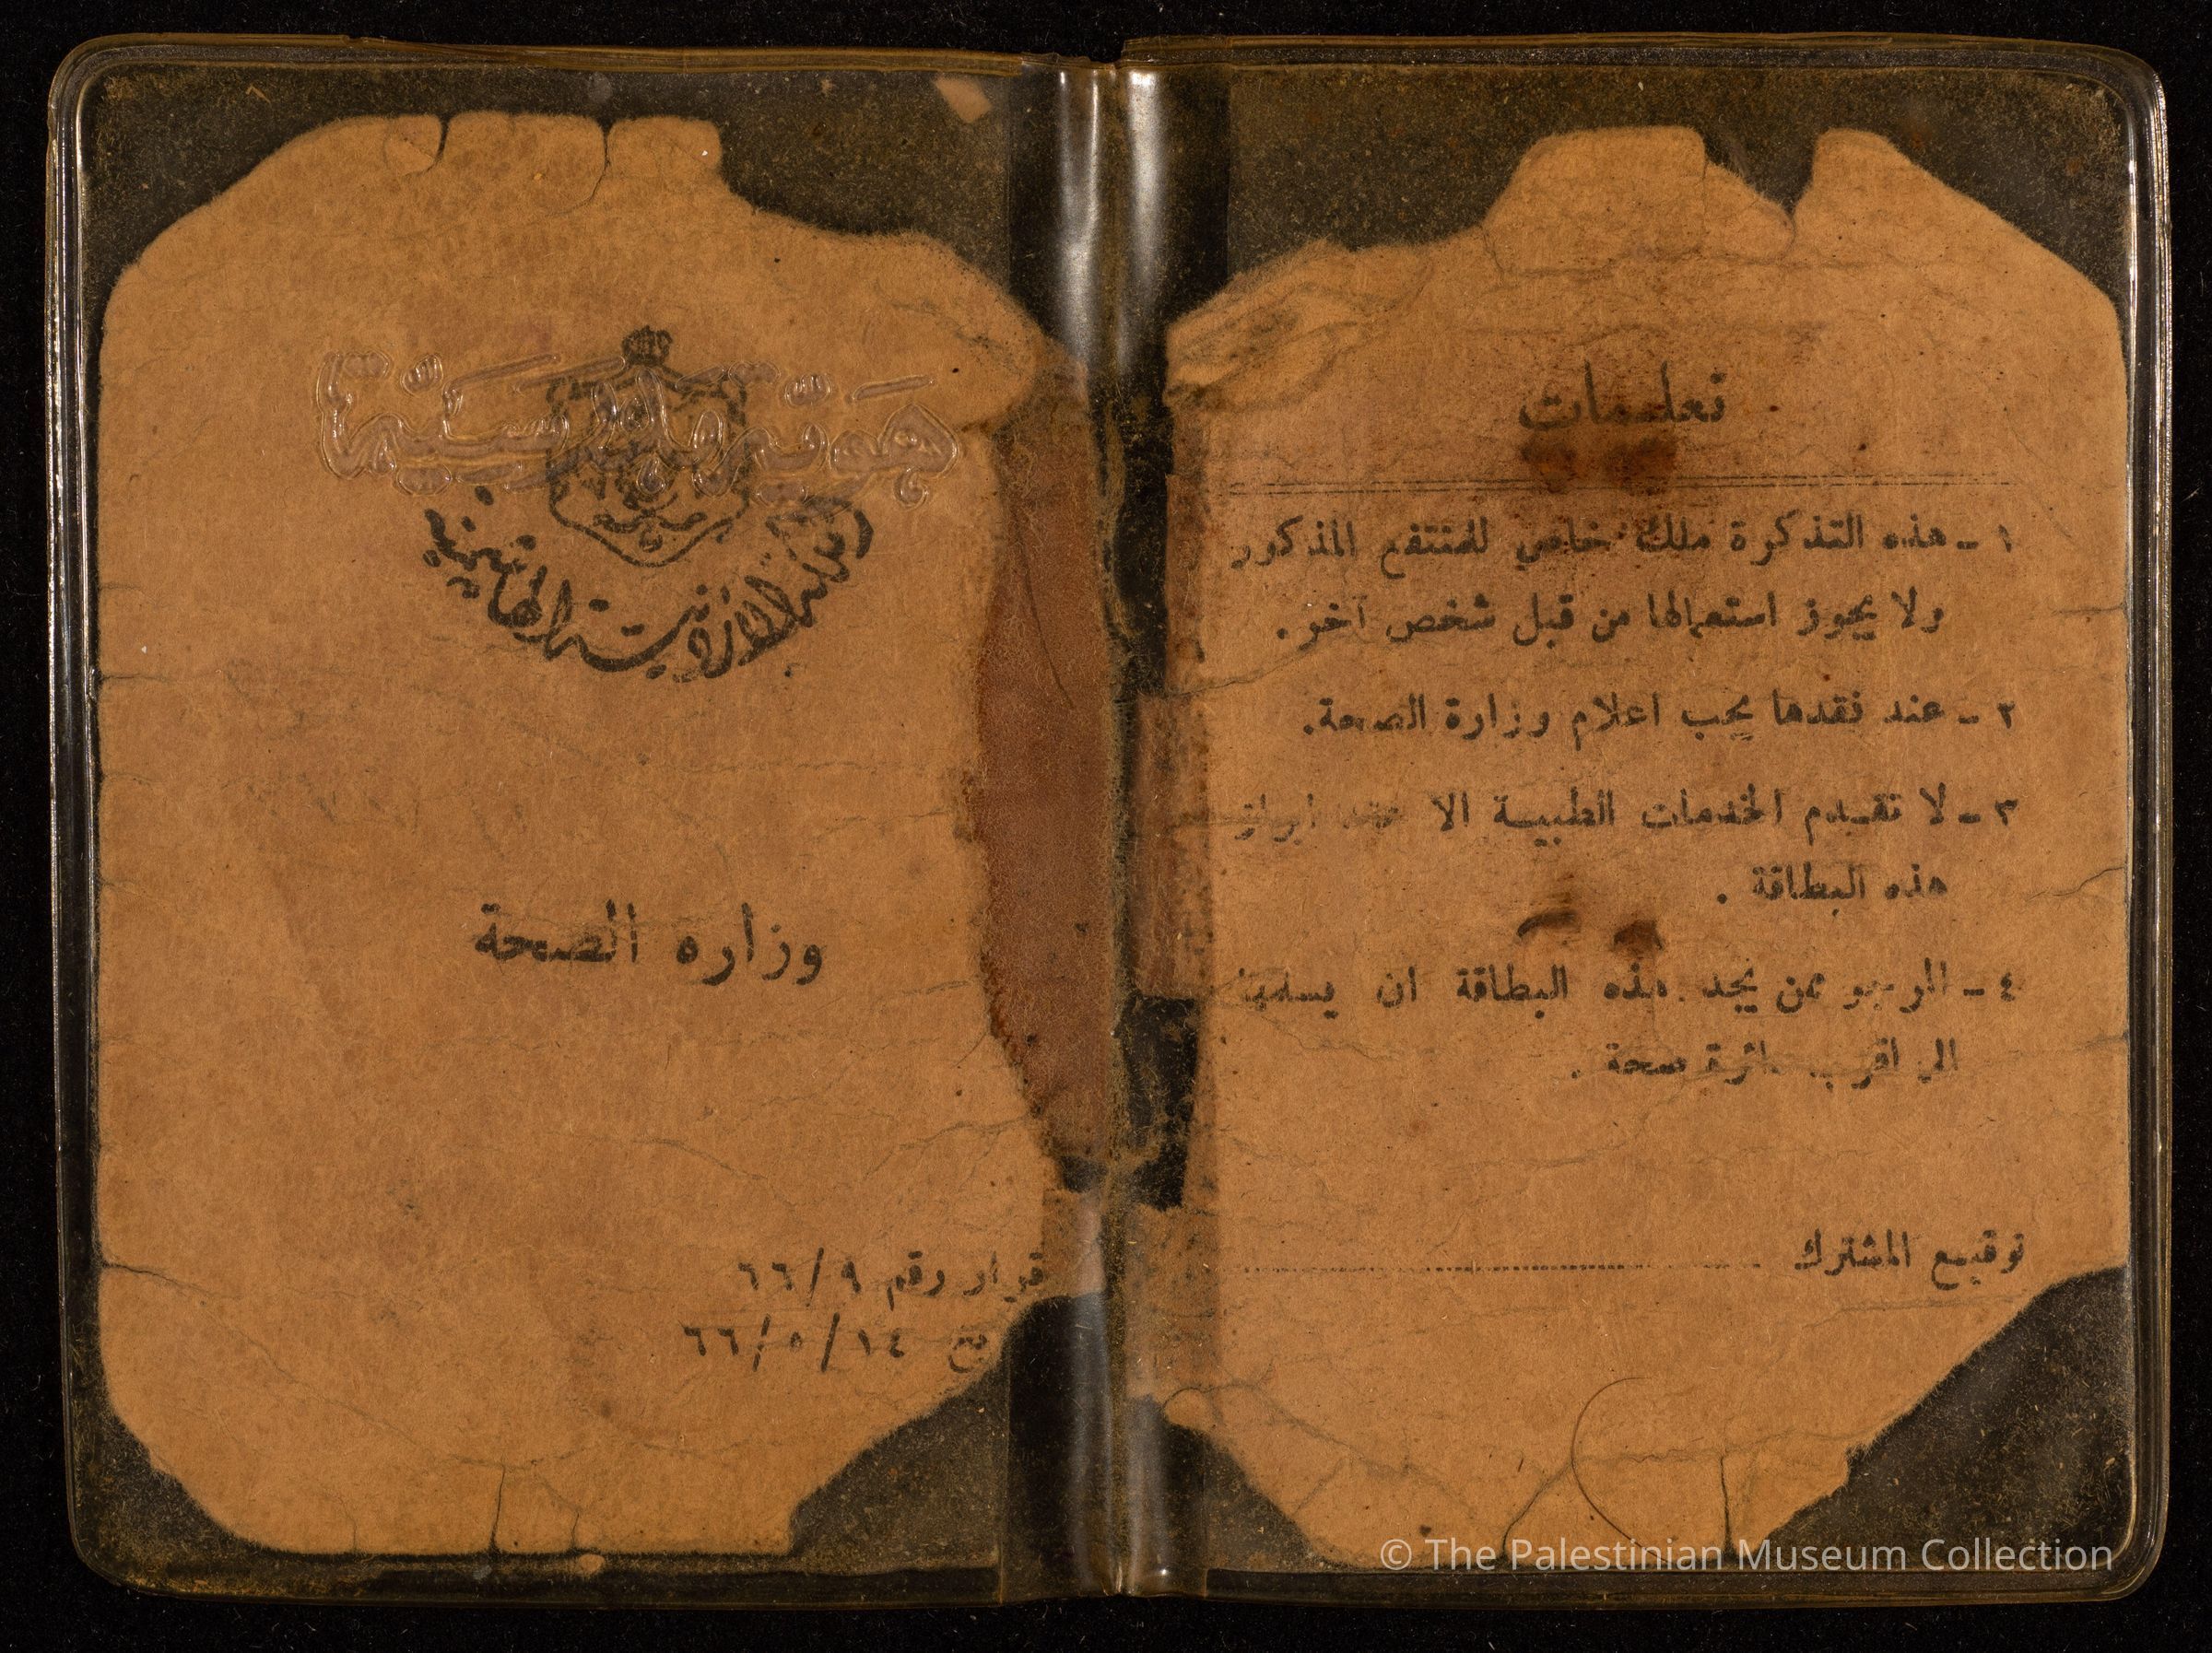 تعليمات
١ - هذه التذكرة ملك خاص للمنتفع المذكور
ولا يجوز استعمالها من قبل شخص آخر .
٢ - عند فقدها يجب اعلام وزارة الصحة.
٣ - لا تقدم الخدمات الطبية الا عند ابراز
هذه البطاقة .
٤ - المرجو ممن يجد هذه البطاقة ان يسلمها
الى اقرب دائرة صحة .
توقيع المشترك
المملكة الاردنية الهاشمية
وزاره الصحة
قرار رقم ٦٦/٩
٦٦/٥/١٤
© The Palestinian Museum Collection